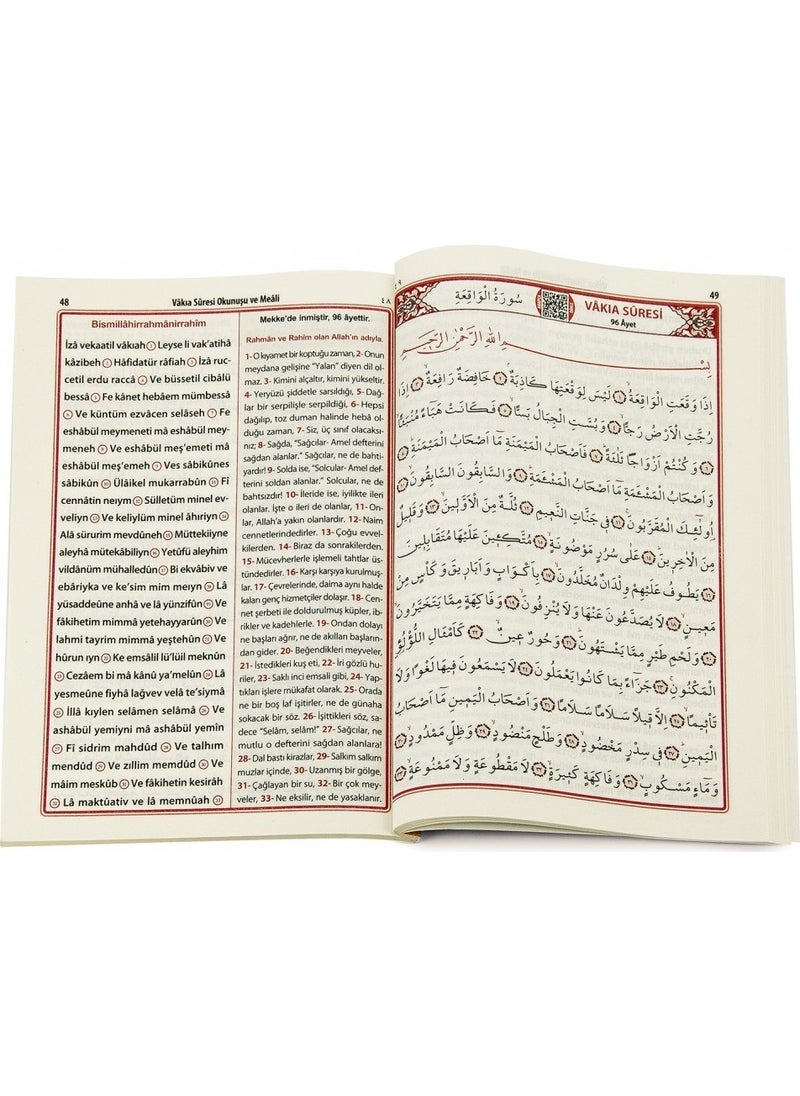 48
Vâkıa Sûresi Okunuşu ve Meâli
٤٨
Bismillâhirrahmânirrahîm
İzâ vekaatil vâkıah ① Leyse li vak'atihâ
kâzibeh ② Hâfidatür râfiah ③ İzâ ruc-
cetil erdu raccâ ④ Ve büssetil cibâlü
bessâ ⑤ Fe kânet hebâem mümbessâ
⑥ Ve küntüm ezvâcen selâseh ⑦ Fe
eshâbül meymeneti mâ eshâbül mey-
meneh ⑧ Ve eshâbül meş'emeti mâ
eshâbül meş'emeh ⑨ Ves sâbikûnes
sâbikûn ⑩ Ülâikel mukarrabûn ⑪ Fî
cennâtin neıym ⑫ Sülletüm minel ev-
veliyn ⑬ Ve keliylüm minel âhıriyn ⑭
Alâ sürurim mevdûneh ⑮ Müttekiiyne
aleyhâ mütekâbiliyn ⑯ Yetûfü aleyhim
vildânüm mühalledûn ⑰ Bi ekvâbiv ve
ebâriyka ve ke'sim mim meıyn ⑱ Lâ
yüsaddeûne anhâ ve lâ yünzifûn ⑲ Ve
fâkihetim mimmâ yetehayyarûn ⑳ Ve
lahmi tayrim mimmâ yeştehûn ㉑ Ve
hûrun ıyn ㉒ Ke emsâlil lü'lüil meknûn
㉓ Cezâem bi mâ kânû ya'melûn ㉔ Lâ
yesmeûne fiyhâ lağvev velâ te'siymâ
㉕ İllâ kıylen selâmen selâmâ ㉖ Ve
ashâbül yemiyni mâ ashâbül yemîn
㉗ Fî sidrim mahdûd ㉘ Ve talhım
mendûd ㉙ Ve zıllim memdûd ㉚ Ve
mâim meskûb ㉛ Ve fâkihetin kesirâh
㉜ Lâ maktûativ ve lâ memnûah ㉝
Mekke'de inmiştir, 96 âyettir.
Rahmân ve Rahîm olan Allah'ın adıyla.
1- O kıyamet bir koptuğu zaman, 2- Onun
meydana gelişine "Yalan" diyen dil ol-
maz. 3- Kimini alçaltır, kimini yükseltir.
4- Yeryüzü şiddetle sarsıldığı, 5- Dağ-
lar bir serpilişle serpildiği, 6- Hepsi
dağılıp, toz duman halinde hebâ ol-
duğu zaman, 7- Siz, üç sınıf olacaksı-
nız; 8- Sağda, "Sağcılar- Amel defterini
sağdan alanlar". Sağcılar, ne de bahti-
yardır! 9- Solda ise, "Solcular- Amel def-
terini soldan alanlar." Solcular, ne de
bahtsızdır! 10- İleride ise, iyilikte ileri
olanlar. İşte o ileri de olanlar, 11- On-
lar, Allah'a yakın olanlardır. 12- Naim
cennetlerindedirler. 13- Çoğu evvel-
kilerden. 14- Biraz da sonrakilerden.
15- Mücevherlerle işlemeli tahtlar üs-
tündedirler. 16- Karşı karşıya kurulmuş-
lar. 17- Çevrelerinde, daima aynı halde
kalan genç hizmetçiler dolaşır. 18- Cen-
net şerbeti ile doldurulmuş küpler, ib-
rikler ve kadehlerle. 19- Ondan dolayı
ne başları ağrır, ne de akılları başların-
dan gider. 20- Beğendikleri meyveler,
21- İstedikleri kuş eti, 22- İri gözlü hu-
riler, 23- Saklı inci emsali gibi, 24- Yap-
tıkları işlere mükafat olarak. 25- Orada
ne bir boş laf işitirler, ne de günaha
sokacak bir söz. 26- İşittikleri söz, sa-
dece "Selâm, selâm!" 27- Sağcılar, ne
mutlu o defterini sağdan alanlara!
28- Dal bastı kirazlar, 29- Salkım salkım
muzlar içinde, 30- Uzanmış bir gölge,
31- Çağlayan bir su, 32- Bir çok mey-
veler, 33- Ne eksilir, ne de yasaklanır.
٤٩
49
سُورَةُ الْوَاقِعَةِ
VÂKIA SÛRESİ
96 Âyet
بِسْمِ اللهِ الرَّحْمٰنِ الرَّحِيمِ
اِذَا وَقَعَتِ الْوَاقِعَةُ ۙ﴿١﴾ لَيْسَ لِوَقْعَتِهَا كَاذِبَةٌ ﴿٢﴾ خَافِضَةٌ رَافِعَةٌ ﴿٣﴾ اِذَا
رُجَّتِ الْاَرْضُ رَجًّا ﴿٤﴾ وَبُسَّتِ الْجِبَالُ بَسًّا ﴿٥﴾ فَكَانَتْ هَبَاءً مُنْبَثًّا
﴿٦﴾ وَكُنْتُمْ اَزْوَاجًا ثَلٰثَةً ﴿٧﴾ فَاَصْحَابُ الْمَيْمَنَةِ مَا اَصْحَابُ الْمَيْمَنَةِ ﴿٨﴾
وَاَصْحَابُ الْمَشْئَمَةِ مَا اَصْحَابُ الْمَشْئَمَةِ ﴿٩﴾ وَالسَّابِقُونَ السَّابِقُونَ ﴿١٠﴾
اُولٰئِكَ الْمُقَرَّبُونَ ﴿١١﴾ فِي جَنَّاتِ النَّعِيمِ ﴿١٢﴾ ثُلَّةٌ مِنَ الْاَوَّلِينَ ﴿١٣﴾ وَقَلِيلٌ
مِنَ الْاٰخِرِينَ ﴿١٤﴾ عَلٰى سُرُرٍ مَوْضُونَةٍ ﴿١٥﴾ مُتَّكِئِينَ عَلَيْهَا مُتَقَابِلِينَ
﴿١٦﴾ يَطُوفُ عَلَيْهِمْ وِلْدَانٌ مُخَلَّدُونَ ﴿١٧﴾ بِاَكْوَابٍ وَاَبَارِيقَ وَكَأْسٍ مِنْ
مَعِينٍ ﴿١٨﴾ لَا يُصَدَّعُونَ عَنْهَا وَلَا يُنْزِفُونَ ﴿١٩﴾ وَفَاكِهَةٍ مِمَّا يَتَخَيَّرُونَ
﴿٢٠﴾ وَلَحْمِ طَيْرٍ مِمَّا يَشْتَهُونَ ﴿٢١﴾ وَحُورٌ عِينٌ ﴿٢٢﴾ كَاَمْثَالِ اللُّؤْلُؤِ
الْمَكْنُونِ ﴿٢٣﴾ جَزَاءً بِمَا كَانُوا يَعْمَلُونَ ﴿٢٤﴾ لَا يَسْمَعُونَ فِيهَا لَغْوًا وَلَا
تَأْثِيمًا ﴿٢٥﴾ اِلَّا قِيلًا سَلَامًا سَلَامًا ﴿٢٦﴾ وَاَصْحَابُ الْيَمِينِ مَا اَصْحَابُ
الْيَمِينِ ﴿٢٧﴾ فِي سِدْرٍ مَخْضُودٍ ﴿٢٨﴾ وَطَلْحٍ مَنْضُودٍ ﴿٢٩﴾ وَظِلٍّ مَمْدُودٍ ﴿٣٠﴾
وَمَاءٍ مَسْكُوبٍ ﴿٣١﴾ وَفَاكِهَةٍ كَثِيرَةٍ ﴿٣٢﴾ لَا مَقْطُوعَةٍ وَلَا مَمْنُوعَةٍ ﴿٣٣﴾